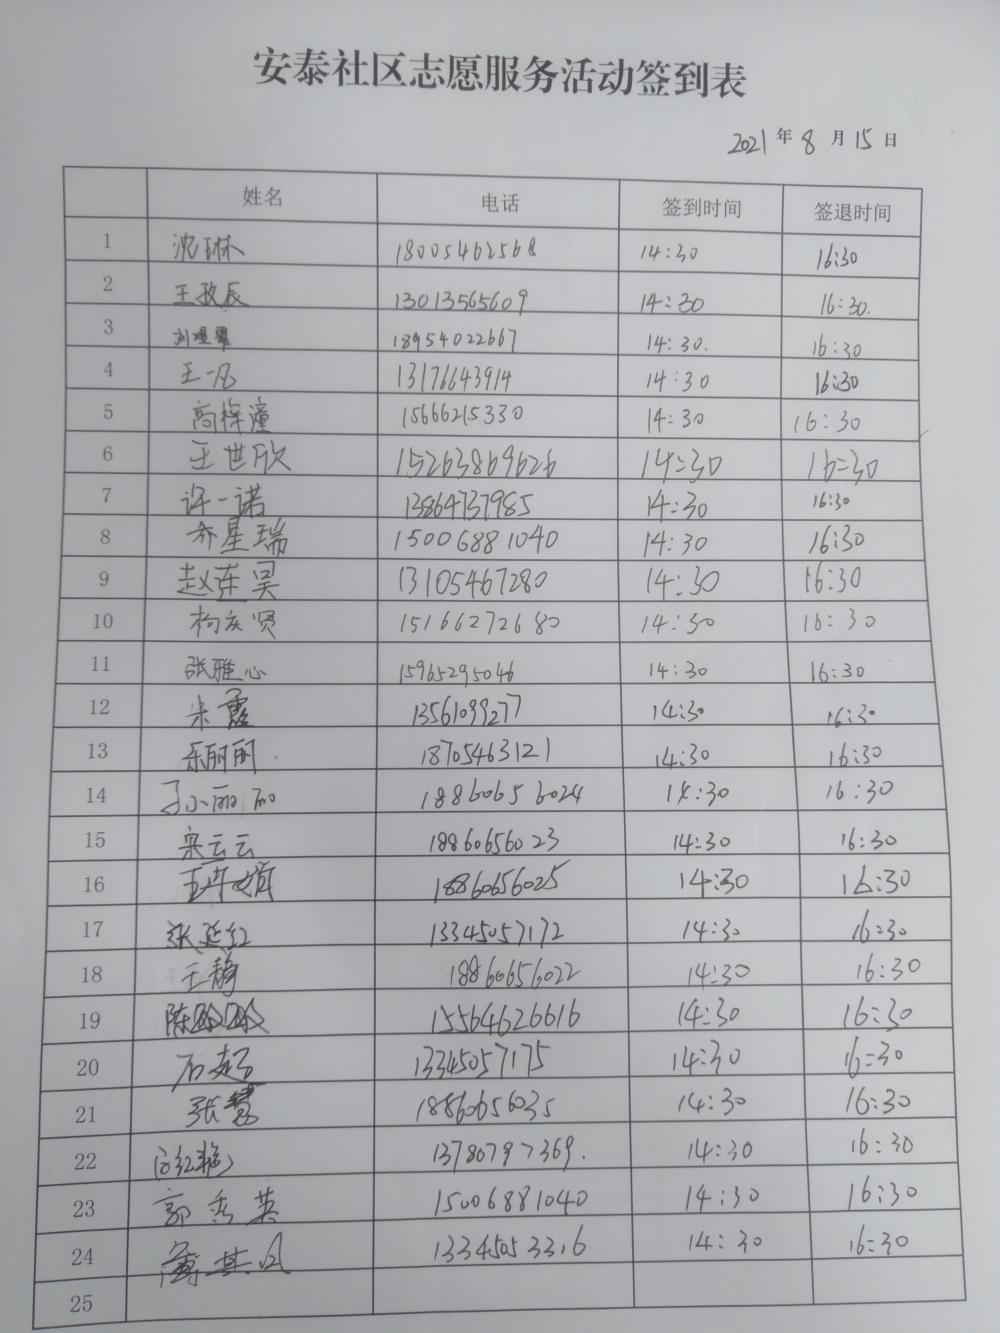 安泰社区志愿服务活动签到表
2021年8月15日
姓名 电话 签到时间 签退时间
1 沈琳 18005462568 14:30 16:30
2 王政辰 13013565609 14:30 16:30.
3 18954022667 14:30. 16:30
4 王一凡 13176643914 14:30 16:30
5 高梓潼 15666215330 14:30 16:30
6 王世欣 15263869626 14:30 16:30
7 许一诺 13864737985 14:30 16:30
8 乔星瑞 15006881040 14:30 16:30
9 赵连昊 13105467280 14:30 16:30
10 杨庆贤 15166272680 14:30 16:30
11 张雅心 15965295046 14:30 16:30
12 朱霞 13561099277 14:30 16:30
13 乐丽丽 18705463121 14:30 16:30
14 小丽 18860656024 14:30 16:30
15 宋云云 18860656023 14:30 16:30
16 王 18860656025 14:30 16:30
17 张延红 13345057172 14:30 16:30
18 王静 18860656022 14:30 16:30
19 陈 15564626616 14:30 16:30
20 石起 13345057175 14:30 16:30
21 张慧 18860656035 14:30 16:30
22 红艳 13780797369. 14:30 16:30
23 郭秀英 15006881040 14:30 16:30
24 薄其凤 13345053316 14:30 16:30
25